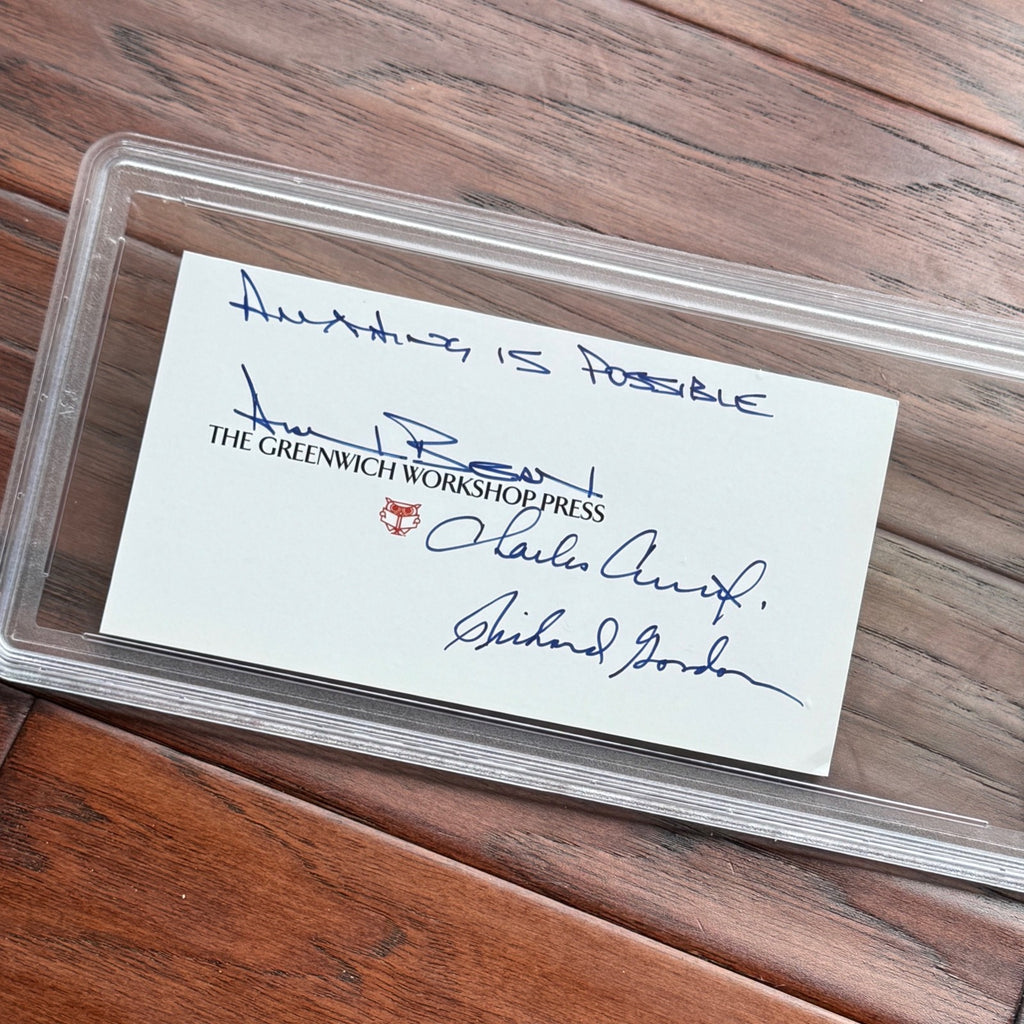 ANYTHING IS POSSIBLE
Alan L BEAN
THE GREENWICH WORKSHOP PRESS
Charles Conrad Jr.
Richard Gordon